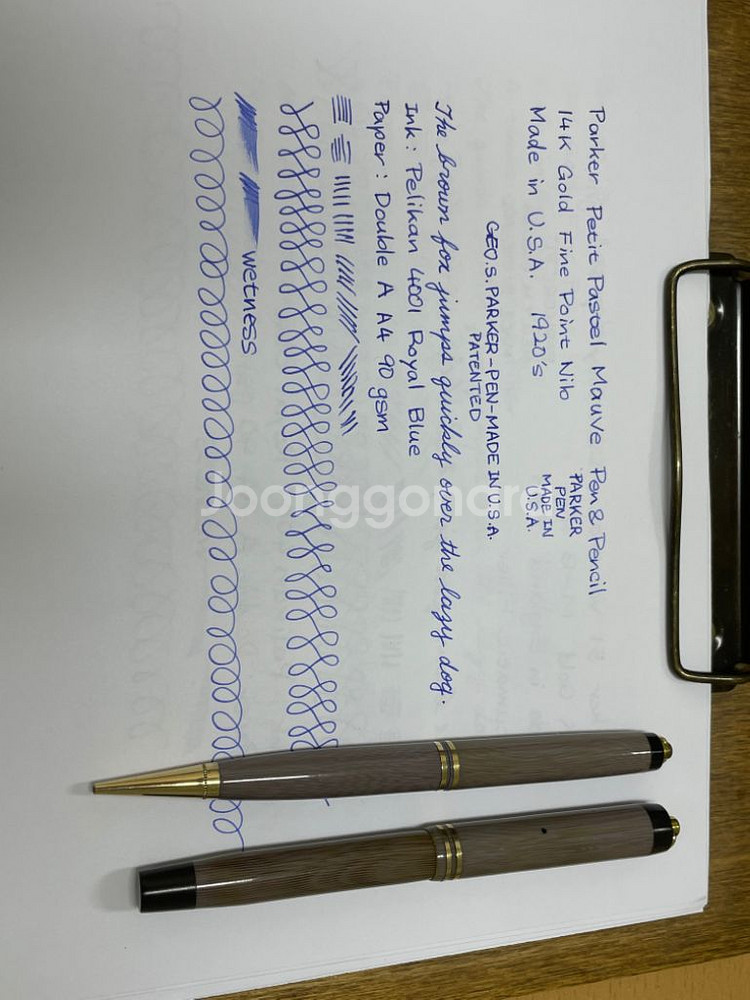 Parker Petit Pastel Mauve Pen & Pencil
14K Gold Fine Point Nib
Made in U.S.A. 1920's
PARKER
PEN
MADE IN
U.S.A.
GEO.S.PARKER-PEN-MADE IN U.S.A.
PATENTED
The brown fox jumps quickly over the lazy dog.
Ink: Pelikan 4001 Royal Blue
Paper: Double A A4 90 gsm
wetness
Joonggonara